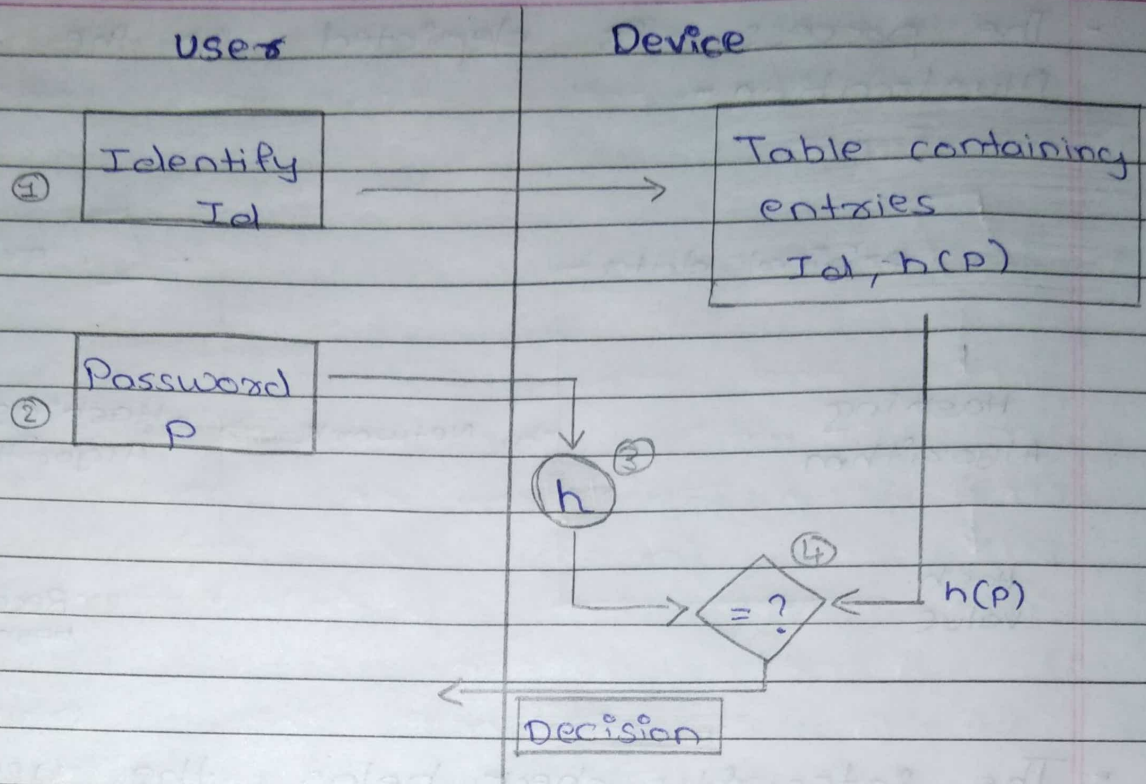 User
Device
① Identify
Id
Table containing
entries
Id, h(p)
② Password
p
③
h
④
= ?
h(p)
Decision